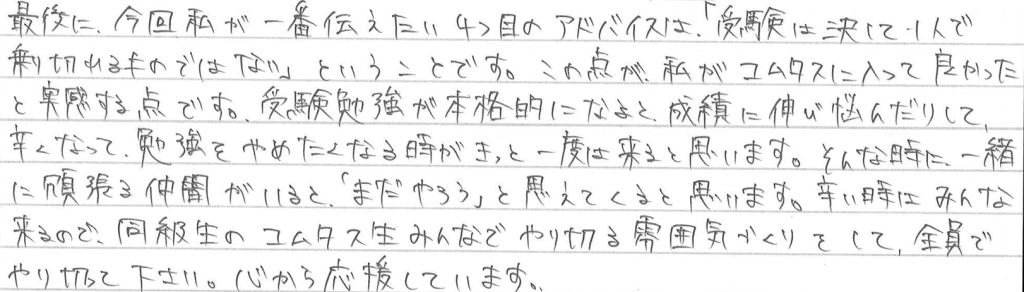 最後に、今回私が一番伝えたい4つ目のアドバイスは、「受験は決して1人で
乗り切れるものではない」ということです。この点が、私がコムタスに入って良かった
と実感する点です。受験勉強が本格的になると、成績に伸び悩んだりして、
辛くなって、勉強をやめたくなる時がきっと一度は来ると思います。そんな時に、一緒
に頑張る仲間がいると、「まだやろう」と思えてくると思います。辛い時はみんな
来るので、同級生のコムタス生みんなでやり切る雰囲気づくりをして、全員で
やり切って下さい。心から応援しています。